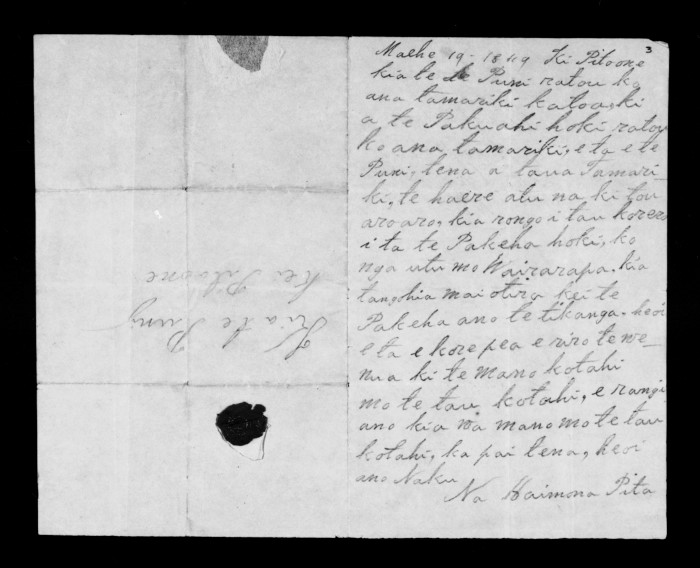 3
Maehe 19 - 1849 Ki Pitoone
kia te Puni ratou ko
ana tamariki katoa, ki
a te Pakuahi hoki ratou
ko ana tamariki, e ta e te
Puni, tena a taua Tamari-
ki, te haere atu na ki tou
aroaro, kia rongo i tau korero
i ta te Pakeha hoki, ko
nga utu mo Wairarapa. kia
tangohia mai otira kei te
Pakeha ano te tikanga. heoi
e ta e kore pea e riro te we-
nua ki te mano kotahi
mo te tau kotahi, e rangi
ano kia wa mano mo te tau
kotahi, ka pai tena, heoi
ano Naku
Na Haimona Pita
Kia te Puni
Kei Pitoone